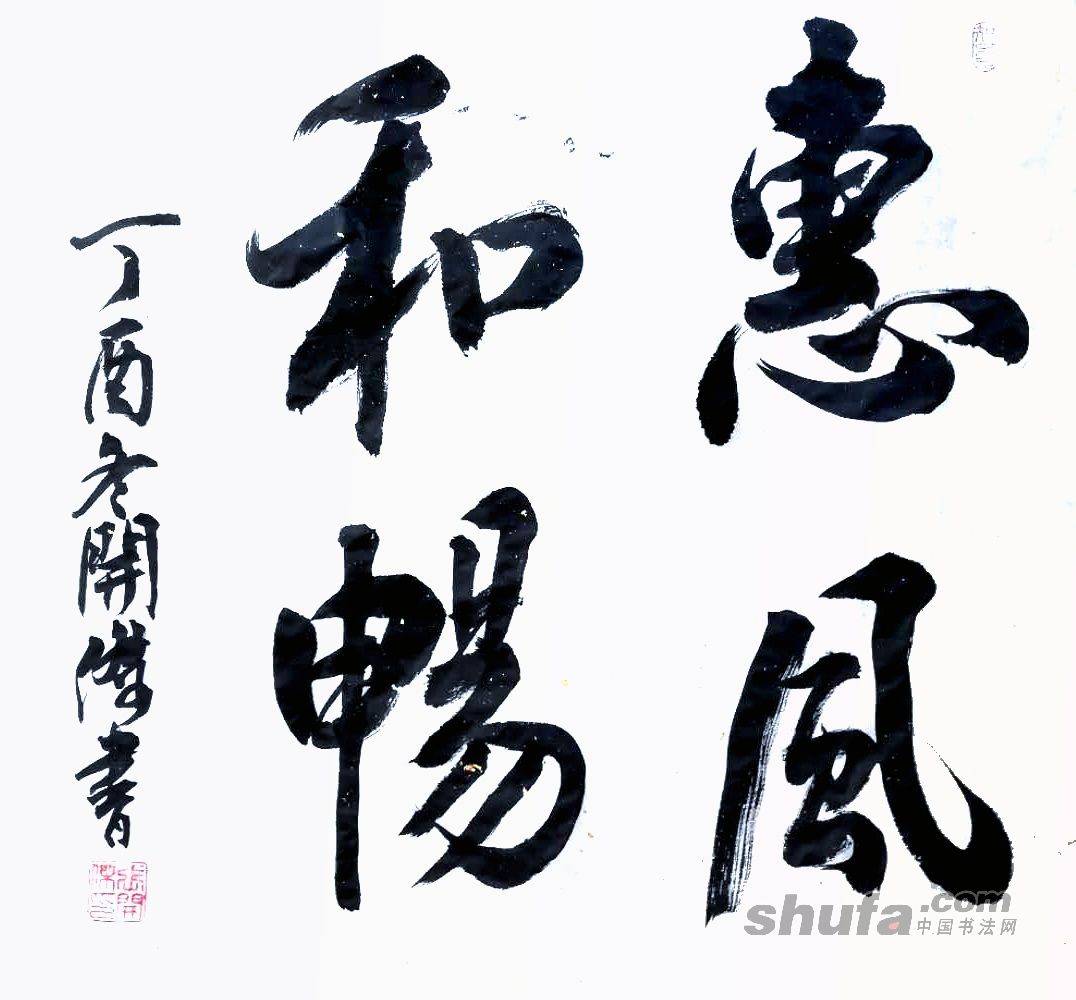 惠風
和暢
丁酉冬開傑書
shufa.com
中国书法网